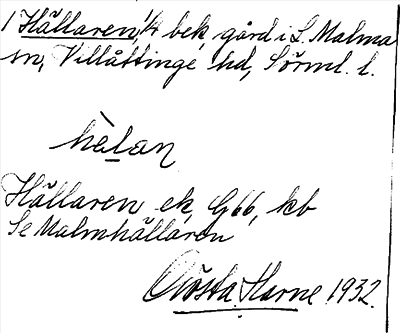 1 Hällaren, 1/4 bek, gård i L. Malma
sn, Villåttinge hd, Sörml. l.
hèlan
Hällaren ek, G66, kb
Se Malmhällaren
Gösta Harne 1932.